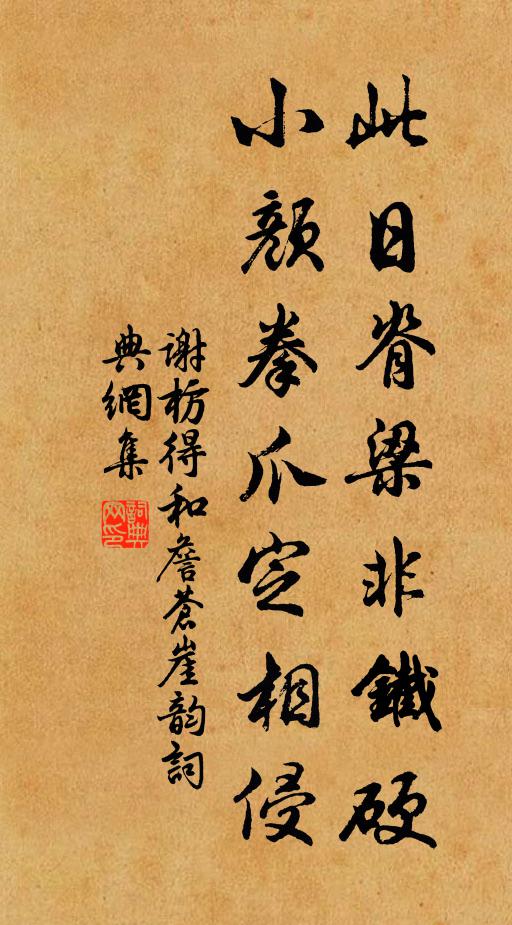 此日脊梁非鐵硬
小顏拳爪定相侵
謝枋得和詹蒼崖韵詞
典網集
詞典網印